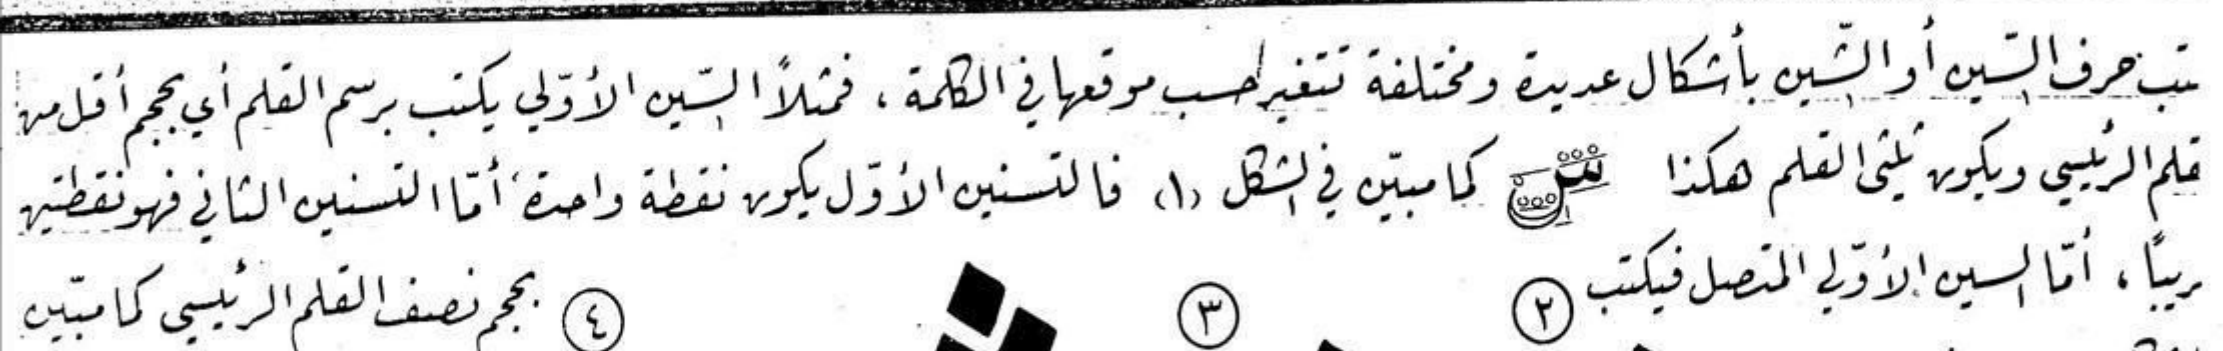 ـتب حرف السّين أو الشّين بأشكال عديدة ومختلفة تتغير حسب موقعها في الكلمة ، فمثلاً السّين الأوّلي يكتب برسم القلم أي بحجم أقل من
قلم الرئيسي ويكون ثلثي القلم هكذا كما مبيّن في الشكل (١) فالتسنين الأوّل يكون نقطة واحدة ، أمّا التسنين الثاني فهو نقطتين
ريباً ، أمّا السين الأوّلي المتصل فيكتب ٢ ٣ ٤ بحجم نصف القلم الرئيسي كما مبيّن